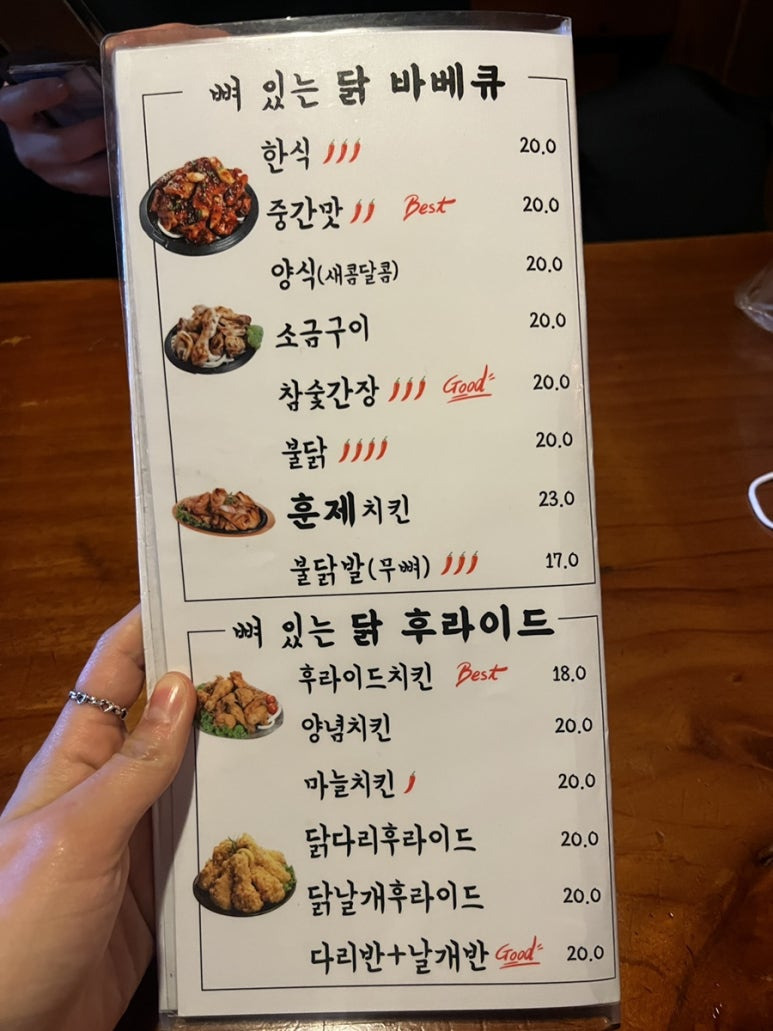 뼈 있는 닭 바베큐
한식 20.0
중간맛 Best 20.0
양식(새콤달콤) 20.0
소금구이 20.0
참숯간장 Good 20.0
불닭 20.0
훈제치킨 23.0
불닭발(무뼈) 17.0
뼈 있는 닭 후라이드
후라이드치킨 Best 18.0
양념치킨 20.0
마늘치킨 20.0
닭다리후라이드 20.0
닭날개후라이드 20.0
다리반+날개반 Good 20.0